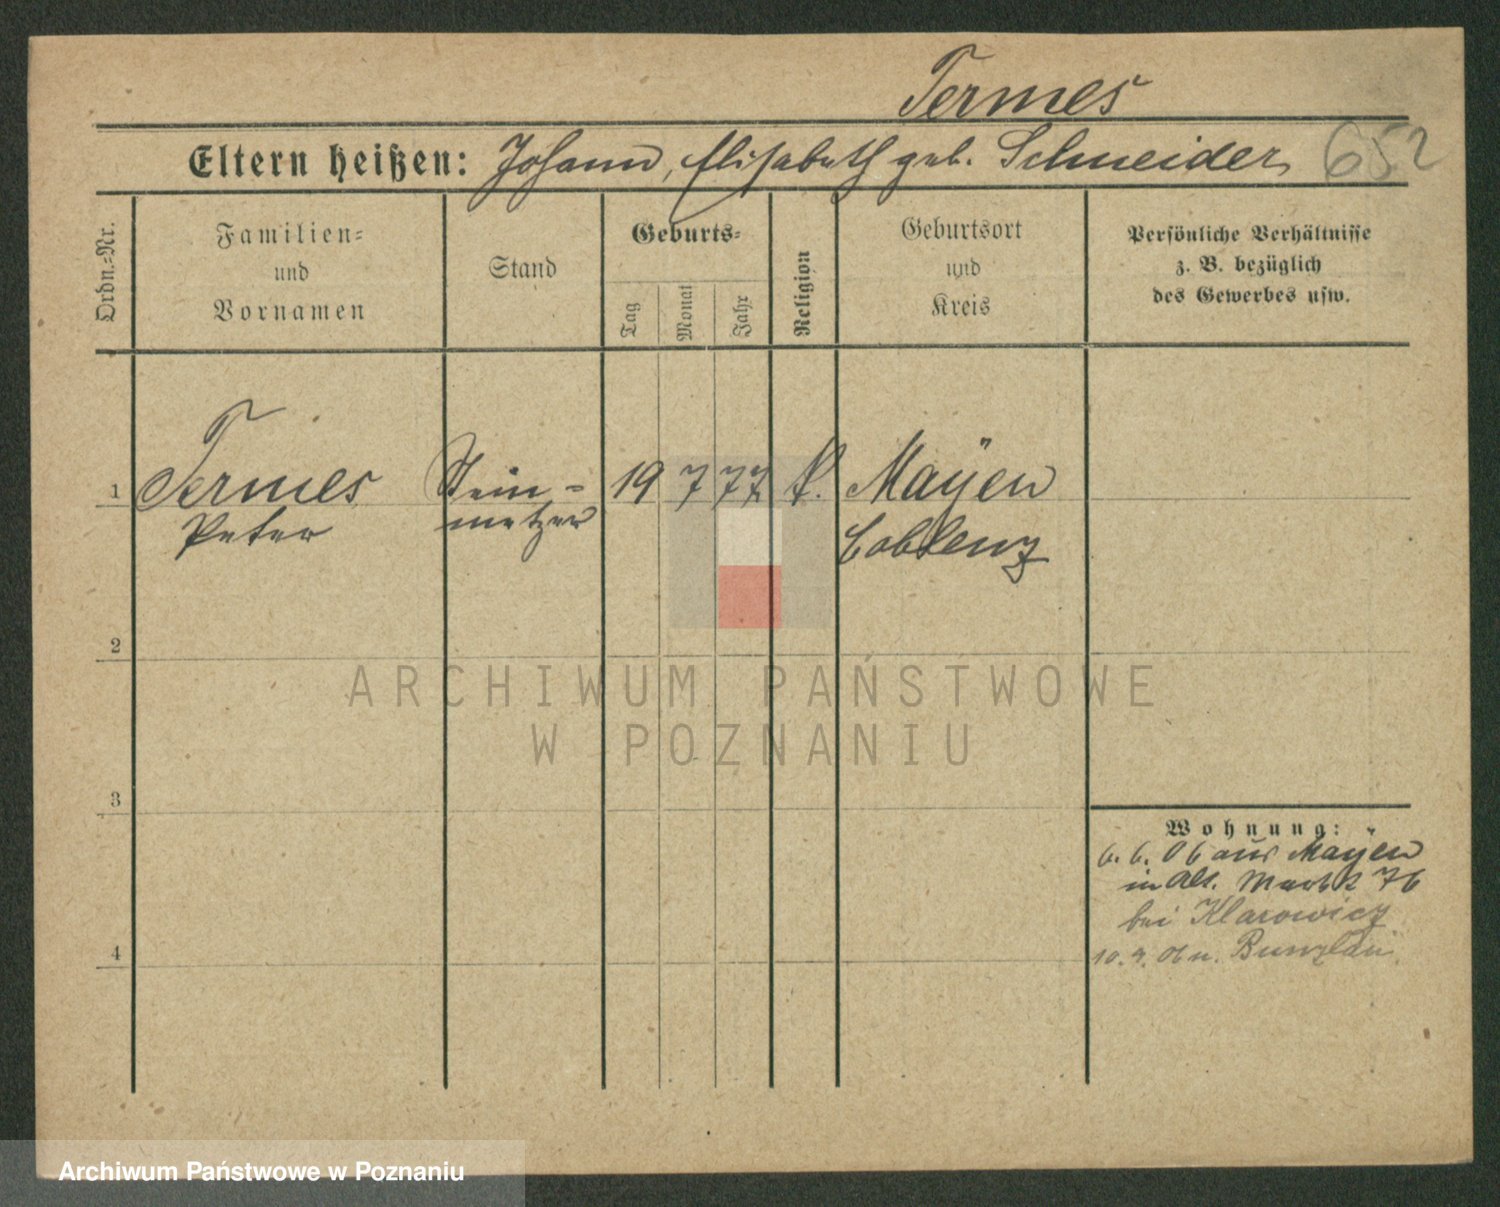 Termes
Eltern heißen: Johann, Elisabeth geb. Schneider 652
Ordn.-Nr.
Familien-
und
Vornamen
Stand
Geburts-
Tag
Monat
Jahr
Religion
Geburtsort
und
Kreis
Persönliche Verhältnisse
z. B. bezüglich
des Gewerbes usw.
1 Termes Stein- 19 7 77 k. Mayen
Peter metzer Coblenz
2
3
4
Wohnung:
6. 6. 06 aus Mayen
in Alt. Markt 76
bei Klarowicz
10. 9. 06 n. Bunzlau
ARCHIWUM PAŃSTWOWE
W POZNANIU
Archiwum Państwowe w Poznaniu